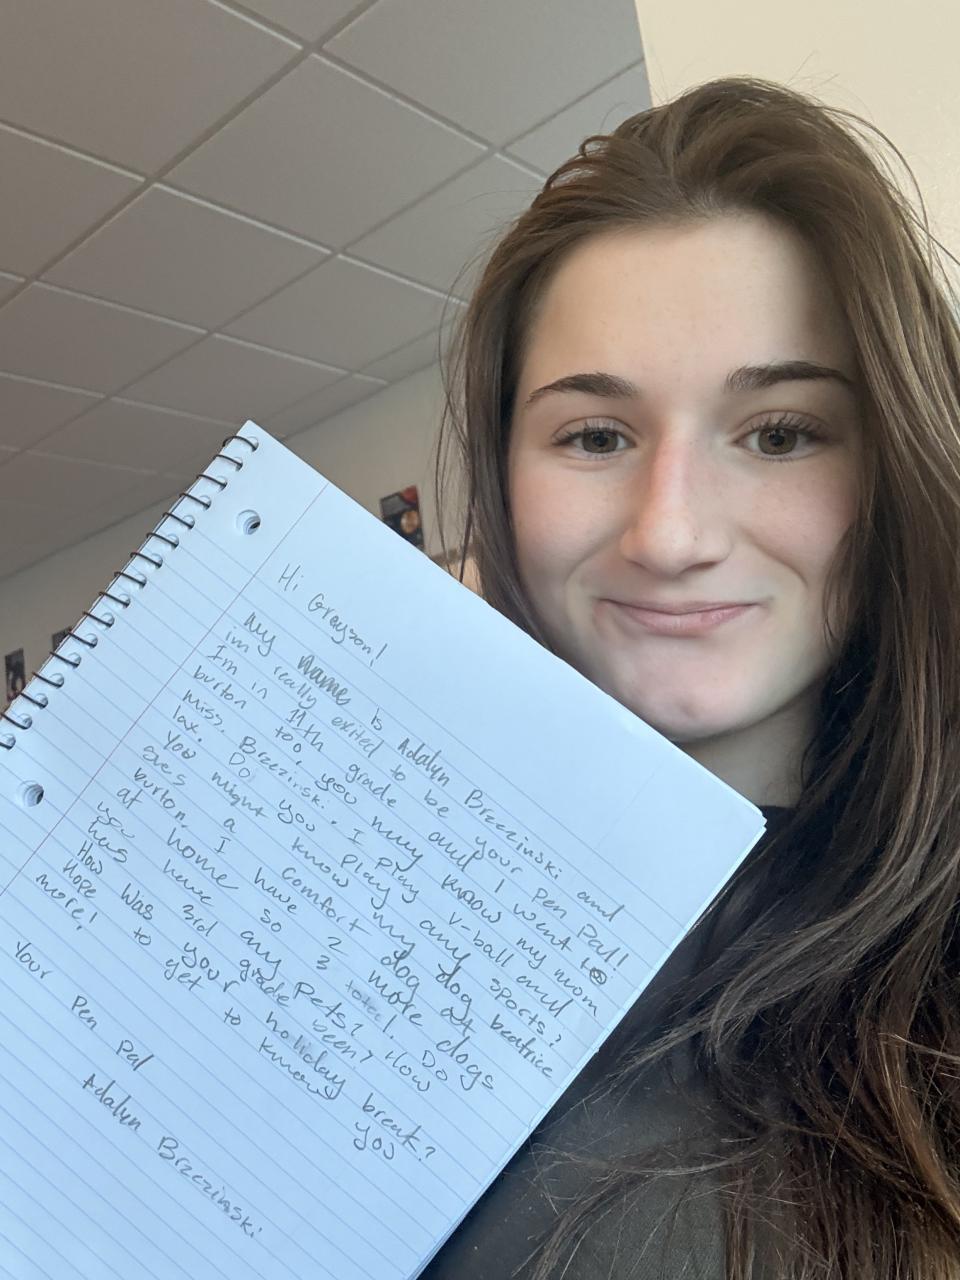 Hi Greyson!
My name is Adalyn Brzezinski and
im really exited to be your Pen Pal!
I'm in 11th grade and I went to
burton too, you may know my mom
miss. Brzezinski. I play v-ball and
lax. Do you play any sports?
You might know my dog beatrice
ses a comfort dog at
burton. I have 2 more dogs
at home so 3 total! Do
you have any Pets? How
has 3rd grade been?
How was your holiday break?
Hope to get to know you
more!
Your Pen Pal
Adalyn Brzezinski